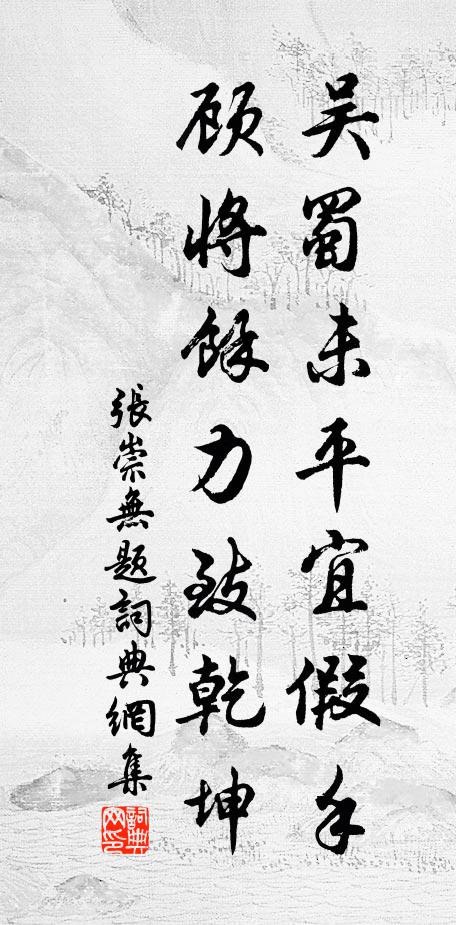 吴蜀未平宜假手
顾将餘力致乾坤
張崇無題詞典網集
詞典网印